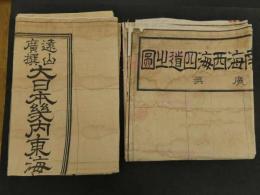 遠山
廣撰
大日本幾内東海
海西海四道之圖
廣